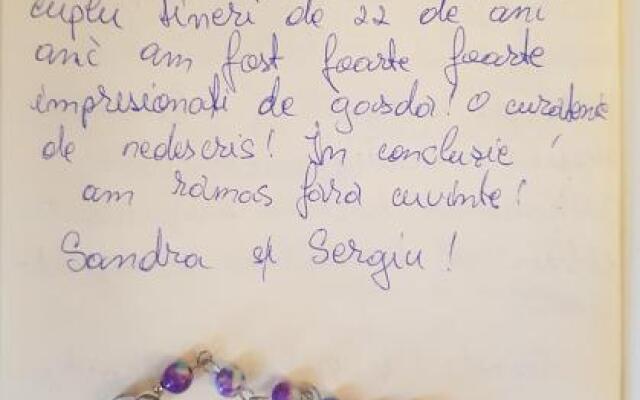 cuplu tineri de 22 de ani
anc am fost foarte foarte
impresionați de gasda! O curatenie
de nedescris! In concluzie !
am ramas fara cuvinte!
Sandra și Sergiu!